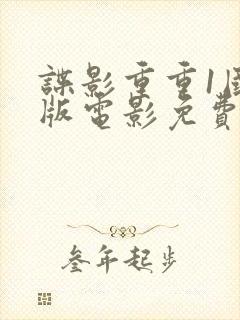 諜影重重1國
版電影免費
叁年起步